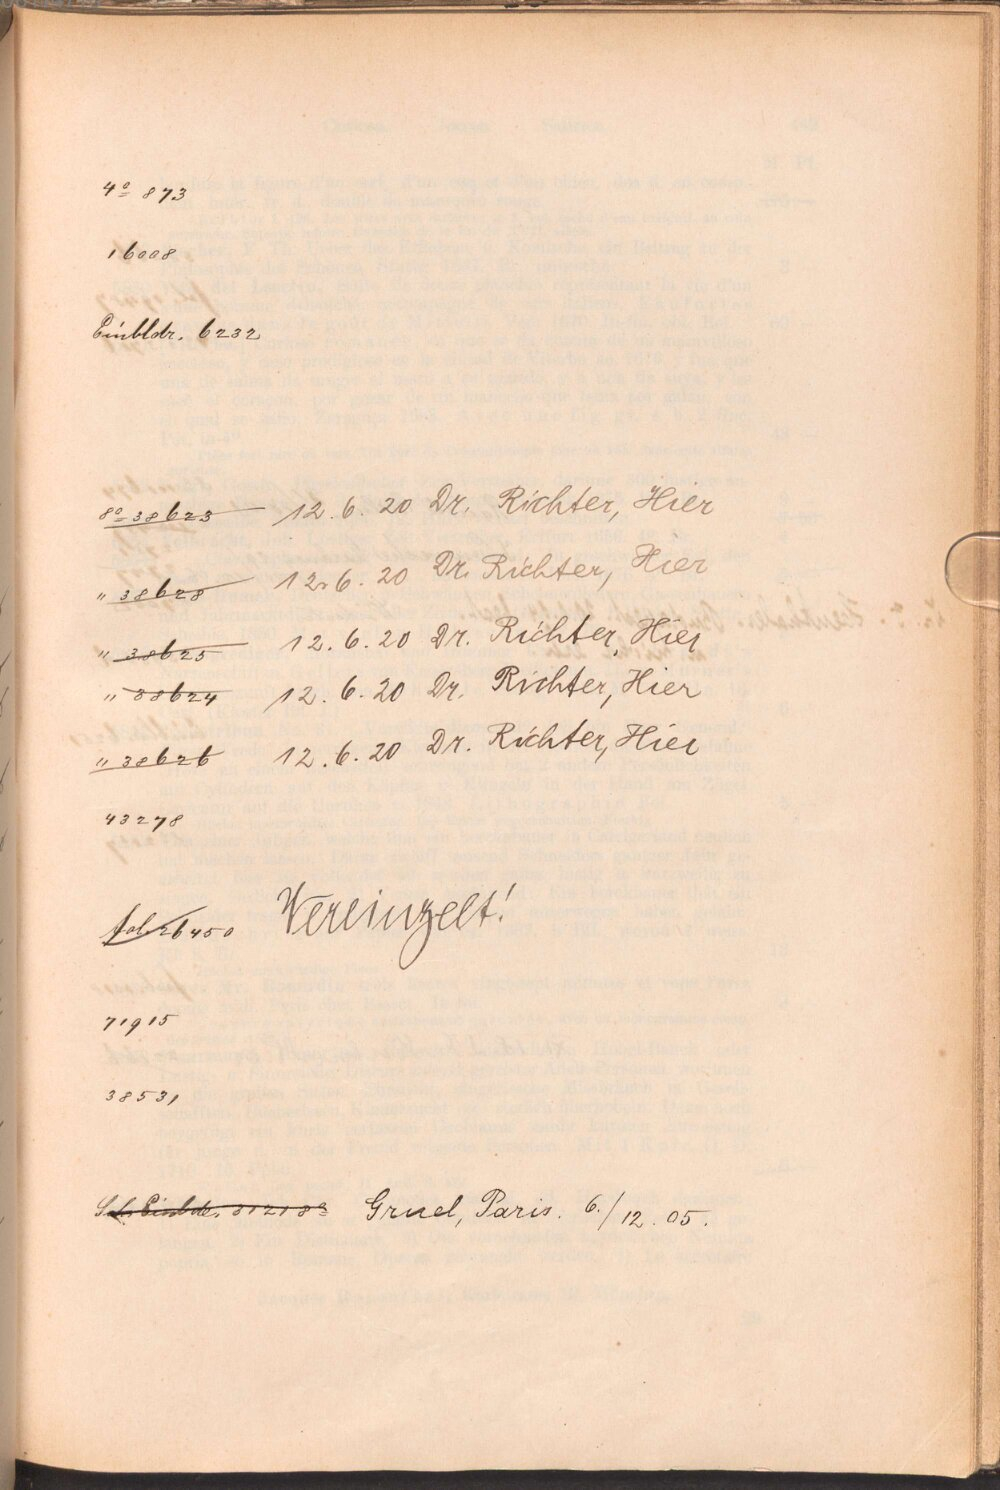 4º 873
16008
Einbldr. 6232
8º 38623 12.6.20 Dr. Richter, Hier
" 38628 12.6.20 Dr. Richter, Hier
" 38625 12.6.20 Dr. Richter, Hier
" 38624 12.6.20 Dr. Richter, Hier
" 38626 12.6.20 Dr. Richter, Hier
43278
fol. 26450 Vereinzelt!
71915
38531
Gruel, Paris. 6./12.05.